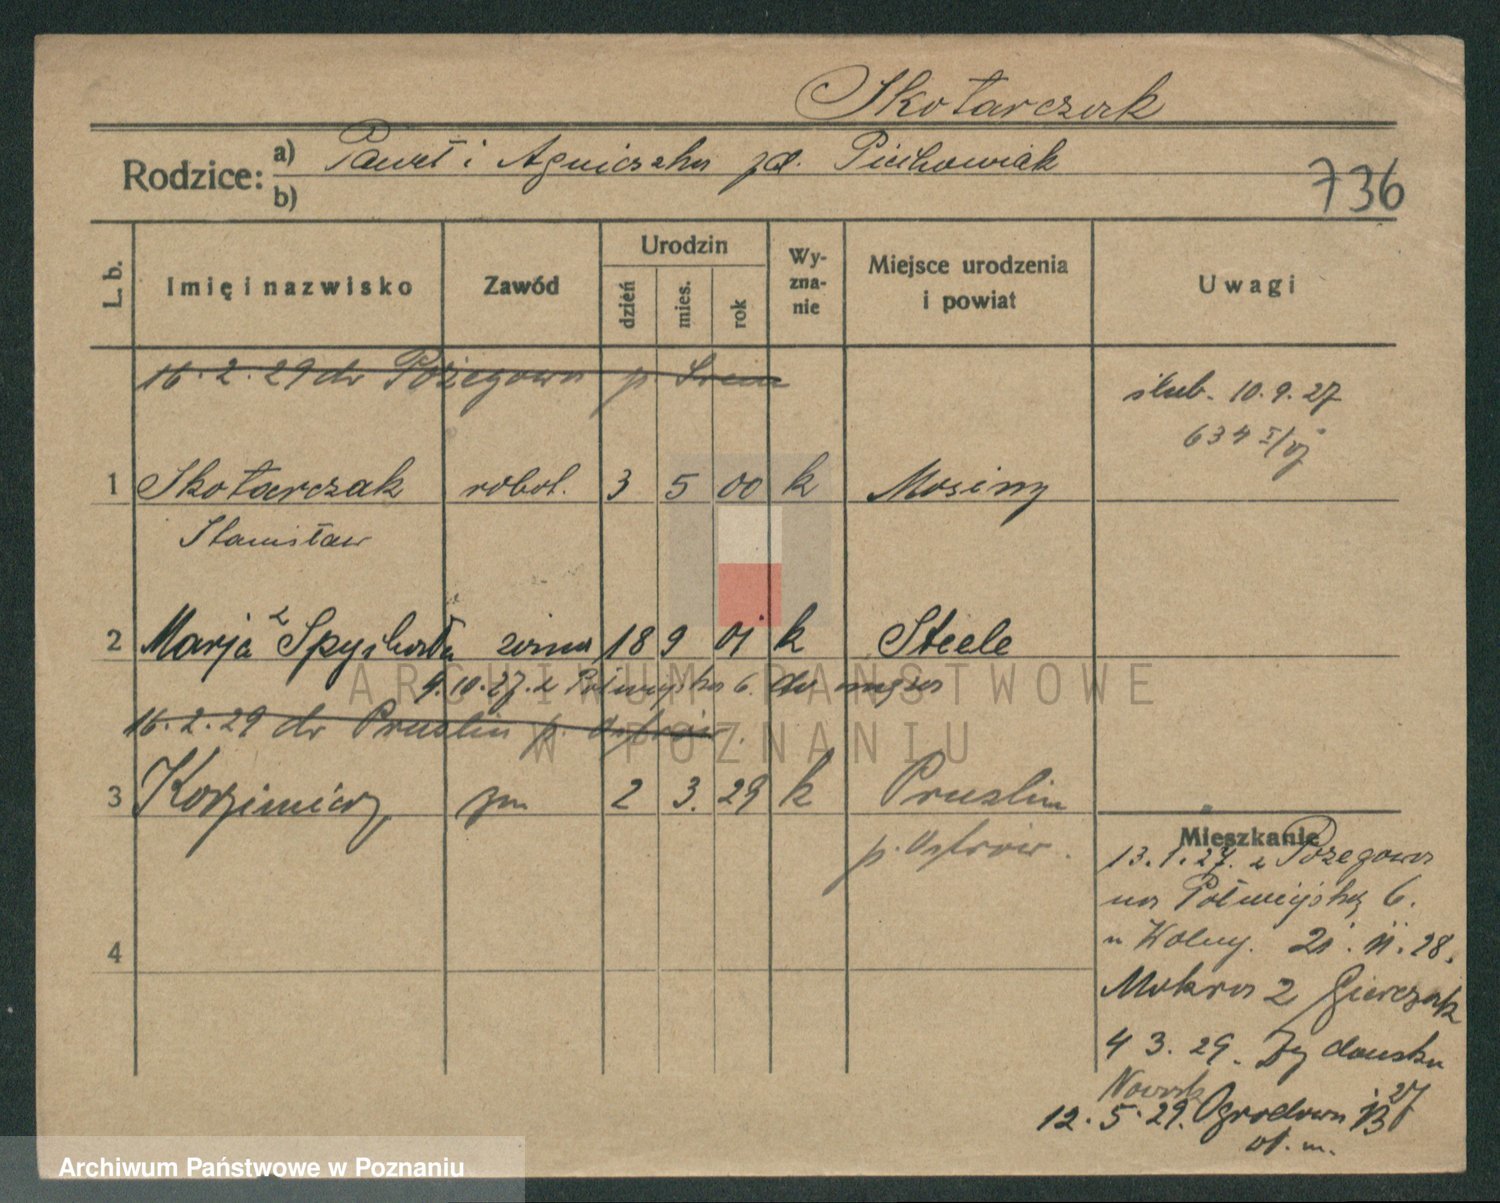 Skotarczak
Rodzice: a) Paweł i Agnieszka zd. Piechowiak
b)
736
L. b.
Imię i nazwisko
Zawód
Urodzin
dzień
mies.
rok
Wy-
zna-
nie
Miejsce urodzenia
i powiat
Uwagi
16. 2. 29 do Pożegowa p Śrem
ślub. 10. 9. 27
634
1 Skotarczak robot. 3 5 00 k Mosiny
Stanisław
2 Marja z Spychała żona 18 9 01 k Steele
9. 10. 27. z Półwiejska 6. do męża
16. 2. 29 do Pruslin p. Ostrów.
3 Kazimierz syn 2 3. 29 k Pruslin
p. Ostrów.
4
Mieszkanie
13. 1. 27. z Pożegowa
na Półwiejską 6.
21. 11. 28.
Mokra 2 Gierczak
4 3. 29.
12. 5. 29. Ogrodowa 13
ARCHIWUM PAŃSTWOWE
W POZNANIU
Archiwum Państwowe w Poznaniu